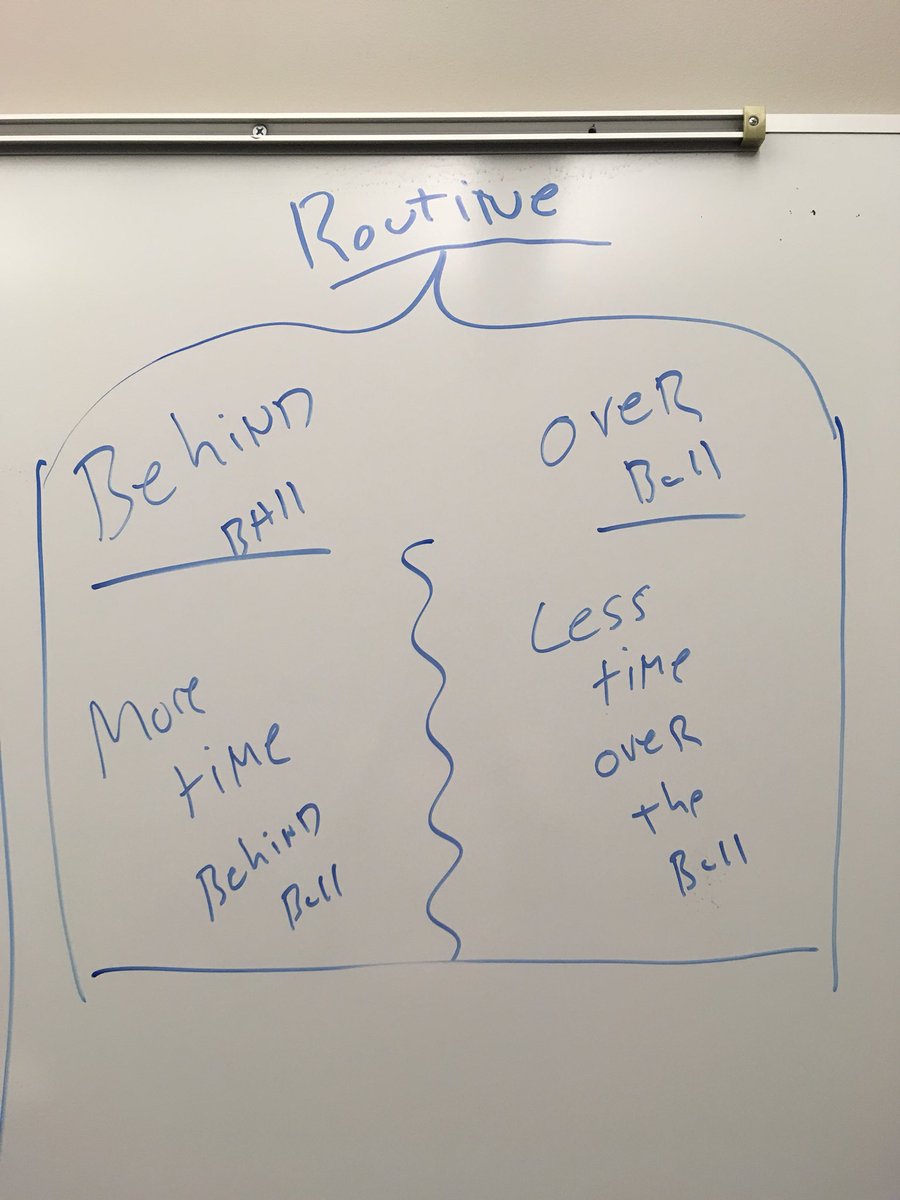 Routine
Behind
Ball
More
time
Behind
Ball
Over
Ball
Less
time
over
the
Ball